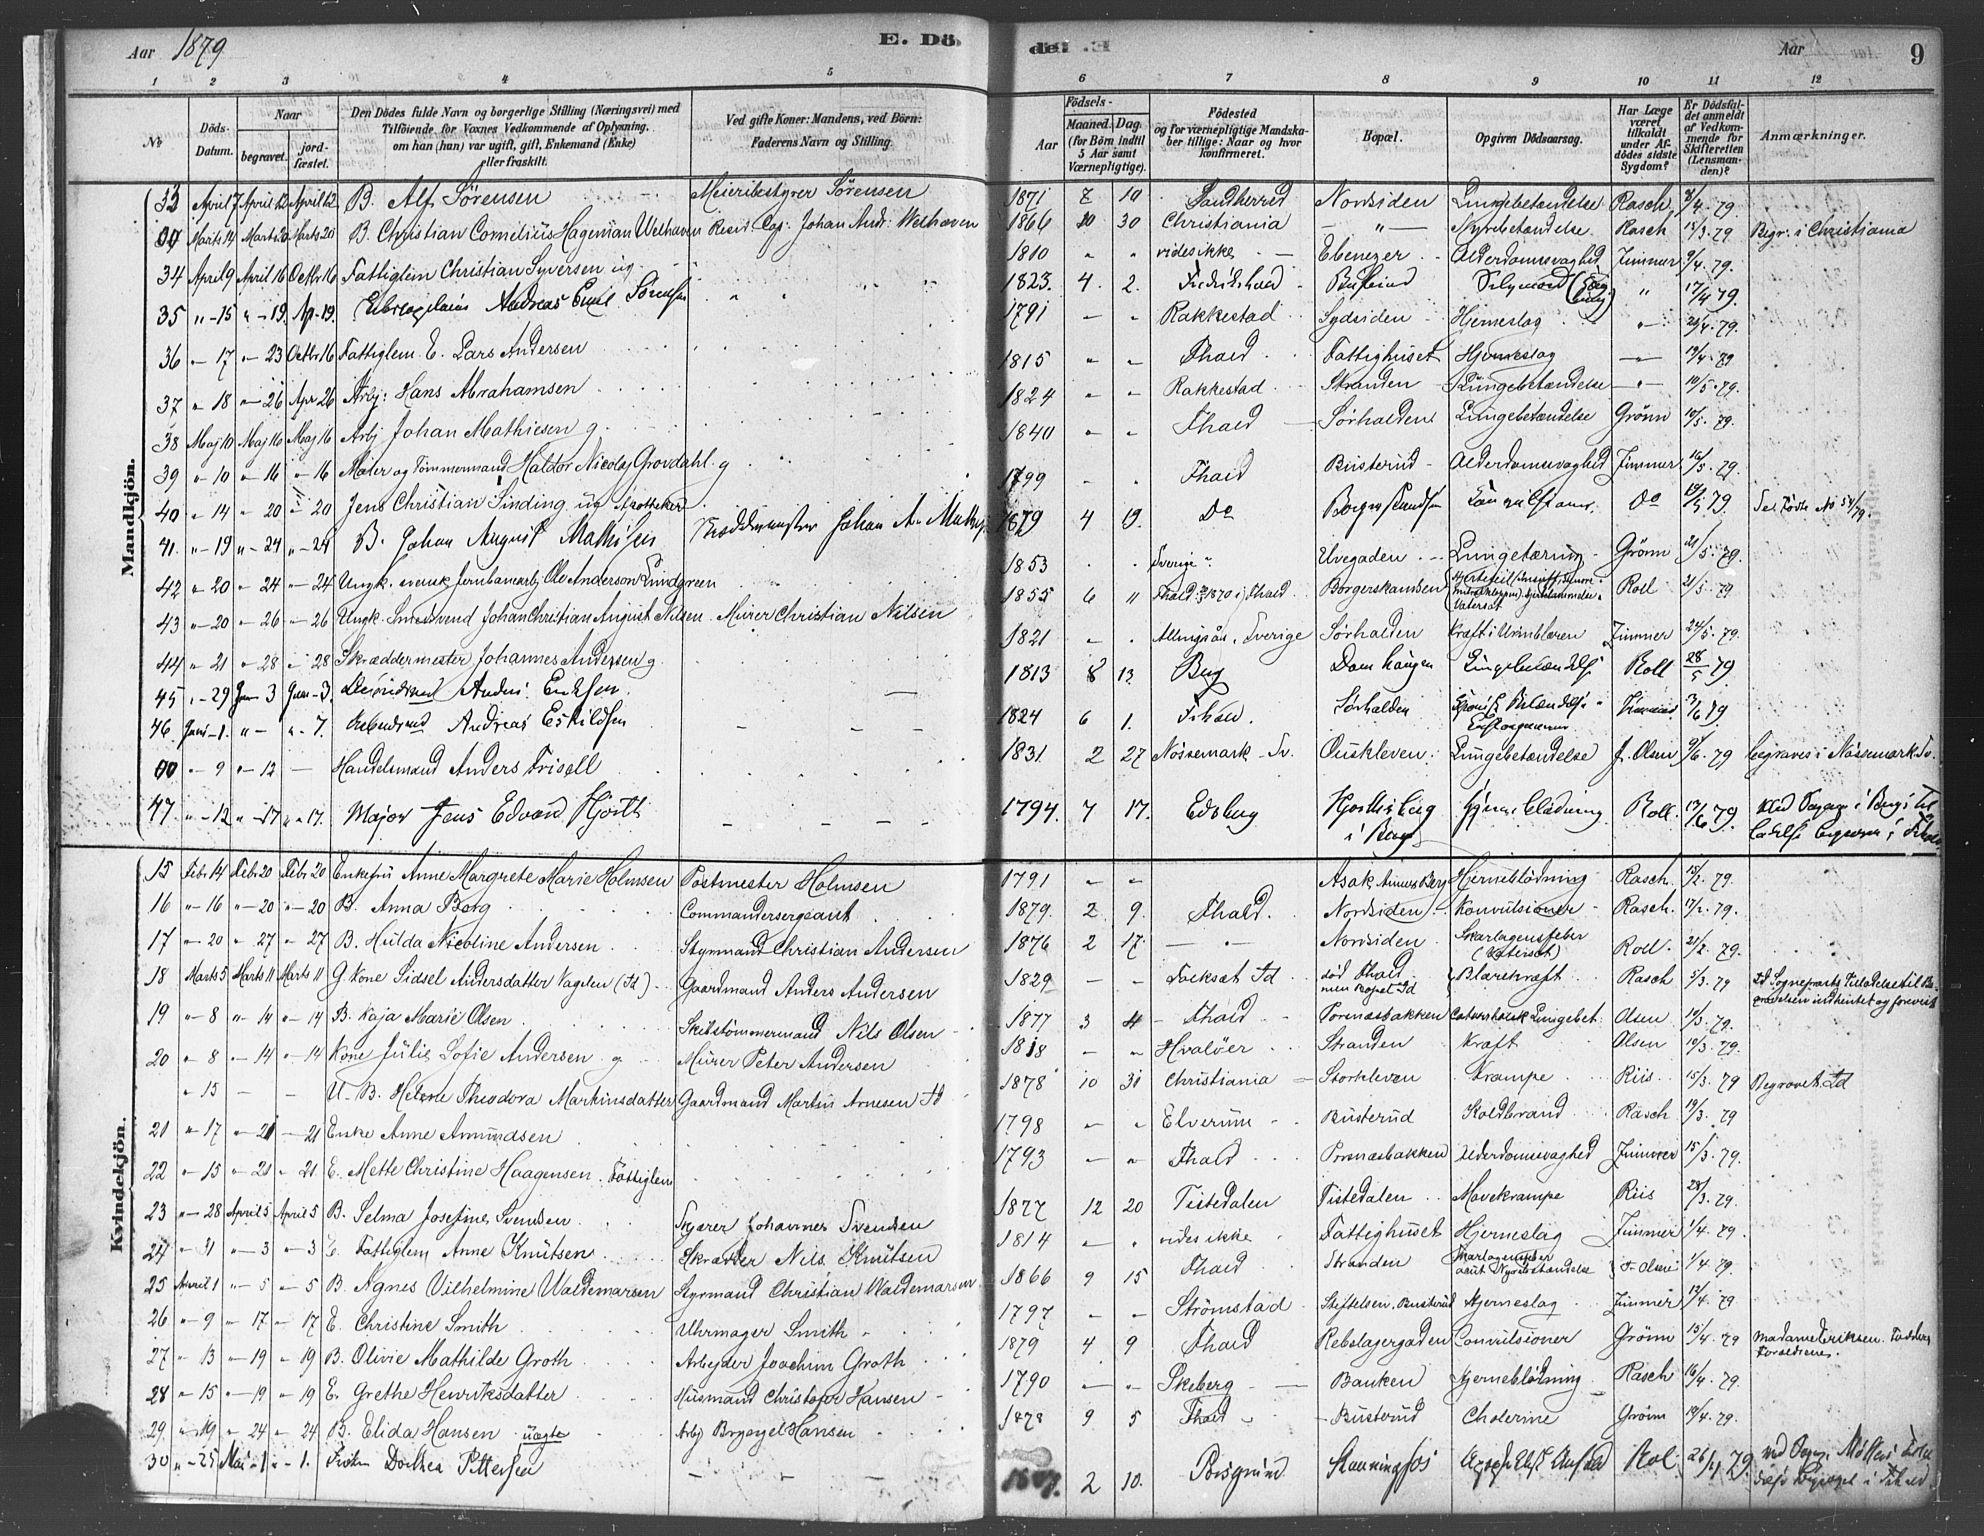 Aar 1879
E. Dö
1 2 3 4 5
No
Döds-Datum.
Naar
begravet. jord-fæstet.
Den Dödes fulde Navn og borgerlige Stilling (Næringsvei) med Tilföiende for Voxnes Vedkommende af Oplysning, om han (hun) var ugift, gift, Enkemand (Enke) eller fraskilt.
Ved gifte Koner: Mandens, ved Börn: Faderens Navn og Stilling.
Mandkjön.
33 April 7 April 12 April 12 B. Alf Sörensen Meieribestyrer Sörensen
00 Marts 14 Marts 20 Marts 20 B. Christian Cornelius Hageman Welhaven Resid. Cap. Johan Andr. Welhaven
34 April 9 April 16 Octbr 16 Fattiglem Christian Syversen ug
35 " - 15 " - 19. Ap. 19. Andreas Emil Sörensen
36 " - 17 " - 23 Octbr 16 Fattiglem E. Lars Andersen
37 " 18 " - 26 Apr 26 Arbj: Hans Abrahamsen
38 Maj 10 Maj 16 Maj 16 Arbj Johan Mathiesen g.
39 " - 10 " - 16 " - 16 Maler og Tömmermand Haldor Nicolaj Grovdahl. g
40 " - 14 " - 20 " - 20 Jens Christian Sinding ug Apotheker
41. " - 19 " - 24 " - 24 B. Johan August Mathisen Skræddermester Johan A.
42 " - 20 " - 24 " - 24 Ungk. svensk Jernbanearbj Ole Anderson Lundgreen
43 " - 20 " - 26 " - 26 Ungk. Smedsvend Johan Christian August Nilsen. Murer Christian Nilsen
44 " - 21 " - 28 " - 28 Skræddermester Johannes Andersen g.
45 " - 29 Juni 3 Juni - 3. Anders Eriksen
46 Juni - 1. " - " - 7. Andreas Eskildsen
00 " - 9 " - 12 — Handelsmand Anders Frisell
47. " - 12 " - 17 " - 17. Major Jens Edvard Hjorth
Kvindekjön.
15 Febr 14 Febr 20 Febr 20 Enkefru Anne Margrete Marie Holmsen Postmester Holmsen
16 " - 16 " - 20 " - 20 B. Anna Berg Commandersergeant
17 " - 20 " 27 " - 27 B. Hulda Nicoline Andersen Styrmand Christian Andersen
18 Marts 5 Marts 11 Marts 11 G. Kone Sidsel Andersdatter Vagelen (Id) Gaardmand Anders Andersen
19 " - 8 " - 14 " - 14 B. Kaja Marie Olsen Skibstömmermand Nils Olsen
20 " - 8 " - 14 " - 14 Kone Julie Sofie Andersen g Murer Peter Andersen
" 15 — — U-B. Helene Theodora Martinsdatter Gaardmand Martin Arnesen Id
21 " - 17 " - 21 — 21 Enke Anne Amundsen
22 " - 15 " - 21 " - 21 E. Mette Christine Haagensen. Fattiglem
23 " - 28 April 5 April 5 B. Selma Josefine Svendsen Johannes Svendsen
24 " - 31 " - 3 " - 3 E. Fattiglem Anne Knutsen Skræder Nils Knutsen
25 April 1 " - 5 " - 5 B. Agnes Vilhelmine Waldemarsen Styrmand Christian Waldemarsen
26 " - 9 " - 17 " - 17 E. Christine Smith Uhrmager Smith
27 " - 13 " - 19 " - 19 B. Olivie Mathilde Groth Arbejder Joachim Groth
28 " - 15 " - 19 " - 19 E. Grethe Henriksdatter Husmand Christofer Hansen
29. " 19 " - 24 " - 24 B. Elida Hansen uægte Arbj Hansen
30 " - 25 Mai - 1 " - 1. Fröken Dorthea Pettersen
Aar 9
6 7 8 9 10 11 12
Födsels-
Aar Maaned. Dag.
(for Börn indtil 5 Aar samt Værnepligtige).
Födested og for værnepligtige Mandskaber tillige: Naar og hvor konfirmeret.
Bopæl.
Opgiven Dödsaarsag.
Har Læge været tilkaldt under Afdödes sidste Sygdom?
Er Dödsfaldet anmeldt af Vedkommende for Skifteretten (Lensmanden)?
Anmærkninger.
1871 7 19 Sandherred Nordsiden Lungebetændelse Rasch 8/4.79.
1866 10 30 Christiania — " — Nyrebetændelse Rasch 15/3.79 Begr. i Christiania
1810 " " vides ikke Ebenezer Alderdomssvaghed Zimmer 9/4.79.
1823. 4. 2. Fredrikshald Selvmord " 17/4 79.
1791 — — Rakkestad Sydsiden Hjerneslag — 21/4.79.
1815 " " Fhald Fattighuset Hjerneslag — 19/4.79
1824 " " Rakkestad Stranden Lungebetændelse — 10/5.79.
1840 " " Fhald Sørhalden Lungebetændelse Grönn 10/5.79.
1799 - . Fhald Busterud Alderdomssvaghed Zimmer 16/5.79.
1879 4 19. Do Do 19/5 79.
1853 . . Sverige Uvegaden Lungetæring Grönn 21/5.79.
1855 6 " Fhald 1870 i Fhald. Borgerskansen Roll 21/5.79
1821 — . Allingsås, Sverige Sørhalden Kræft i Urinblæren Zimmer 24/5.79.
1813 8 13. Berg Damhaugen Lungebetændelse Roll 28/5 79.
1824 6 1. Fhald. Sørhalden 3/6 79
1831 2 27 Nössemark Sv. Ouskleven Lungebetændelse J. Olsen 9/6 79 begraves i Nössemark Sv.
1794. 7 17. Edsberg i Berg Roll. 13/6 79.
1791 — — Asak Annex Berg Hjerneblödning Rasch. 15/2.79.
1879. 2 9. Fhald. Nordsiden Konvulsioner Rasch. 17/2.79.
1876 2 17. — " — Nordsiden Skarlagensfeber (Vatersot) Roll. 21/2.79.
1829 — — Id död Fhald men Bopel Id Blærekræft Rasch 5/3.79
1877 3 4 Fhald Pornæsbakken Catarrhalsk Lungebet. Olsen 10/3.79.
1818 — " Hvalöer Stranden Kræft Olsen 10/3.79.
1878 10 31 Christiania Storkleven Krampe Riis 15/3.79 Begravet Id
1798 " " Elverum Busterud Koldbrand Rasch 19/3.79
1793 — " Fhald Pornæsbakken Alderdomssvaghed Zimmer 15/3.79.
1877 12 20 Tistedalen Tistedalen Mavekrampe Riis 28/3.79.
1814 — " vides ikke Fattighuset Hjerneslag Zimmer 1/4.79.
1866 9 15 Fhald Stranden Skarlagensfeber samt Nyrebetændelse J. Olsen 1/4.79.
1797 — — Strömstad Stiftelsen. Busterud Hjerneslag Zimmer 12/4.79
1879 4 9 Fhald Rebslagergaden Convulsioner Grönn 15/4.79 Madame Eriksen.
1790 — " Skeberg Banken Hjerneblödning Rasch 16/4.79.
1878 9 5 Fhald Busterud Cholerine Grönn 19/4.79.
2 10. Porsgrund Skonningfos Rol 26/4 79